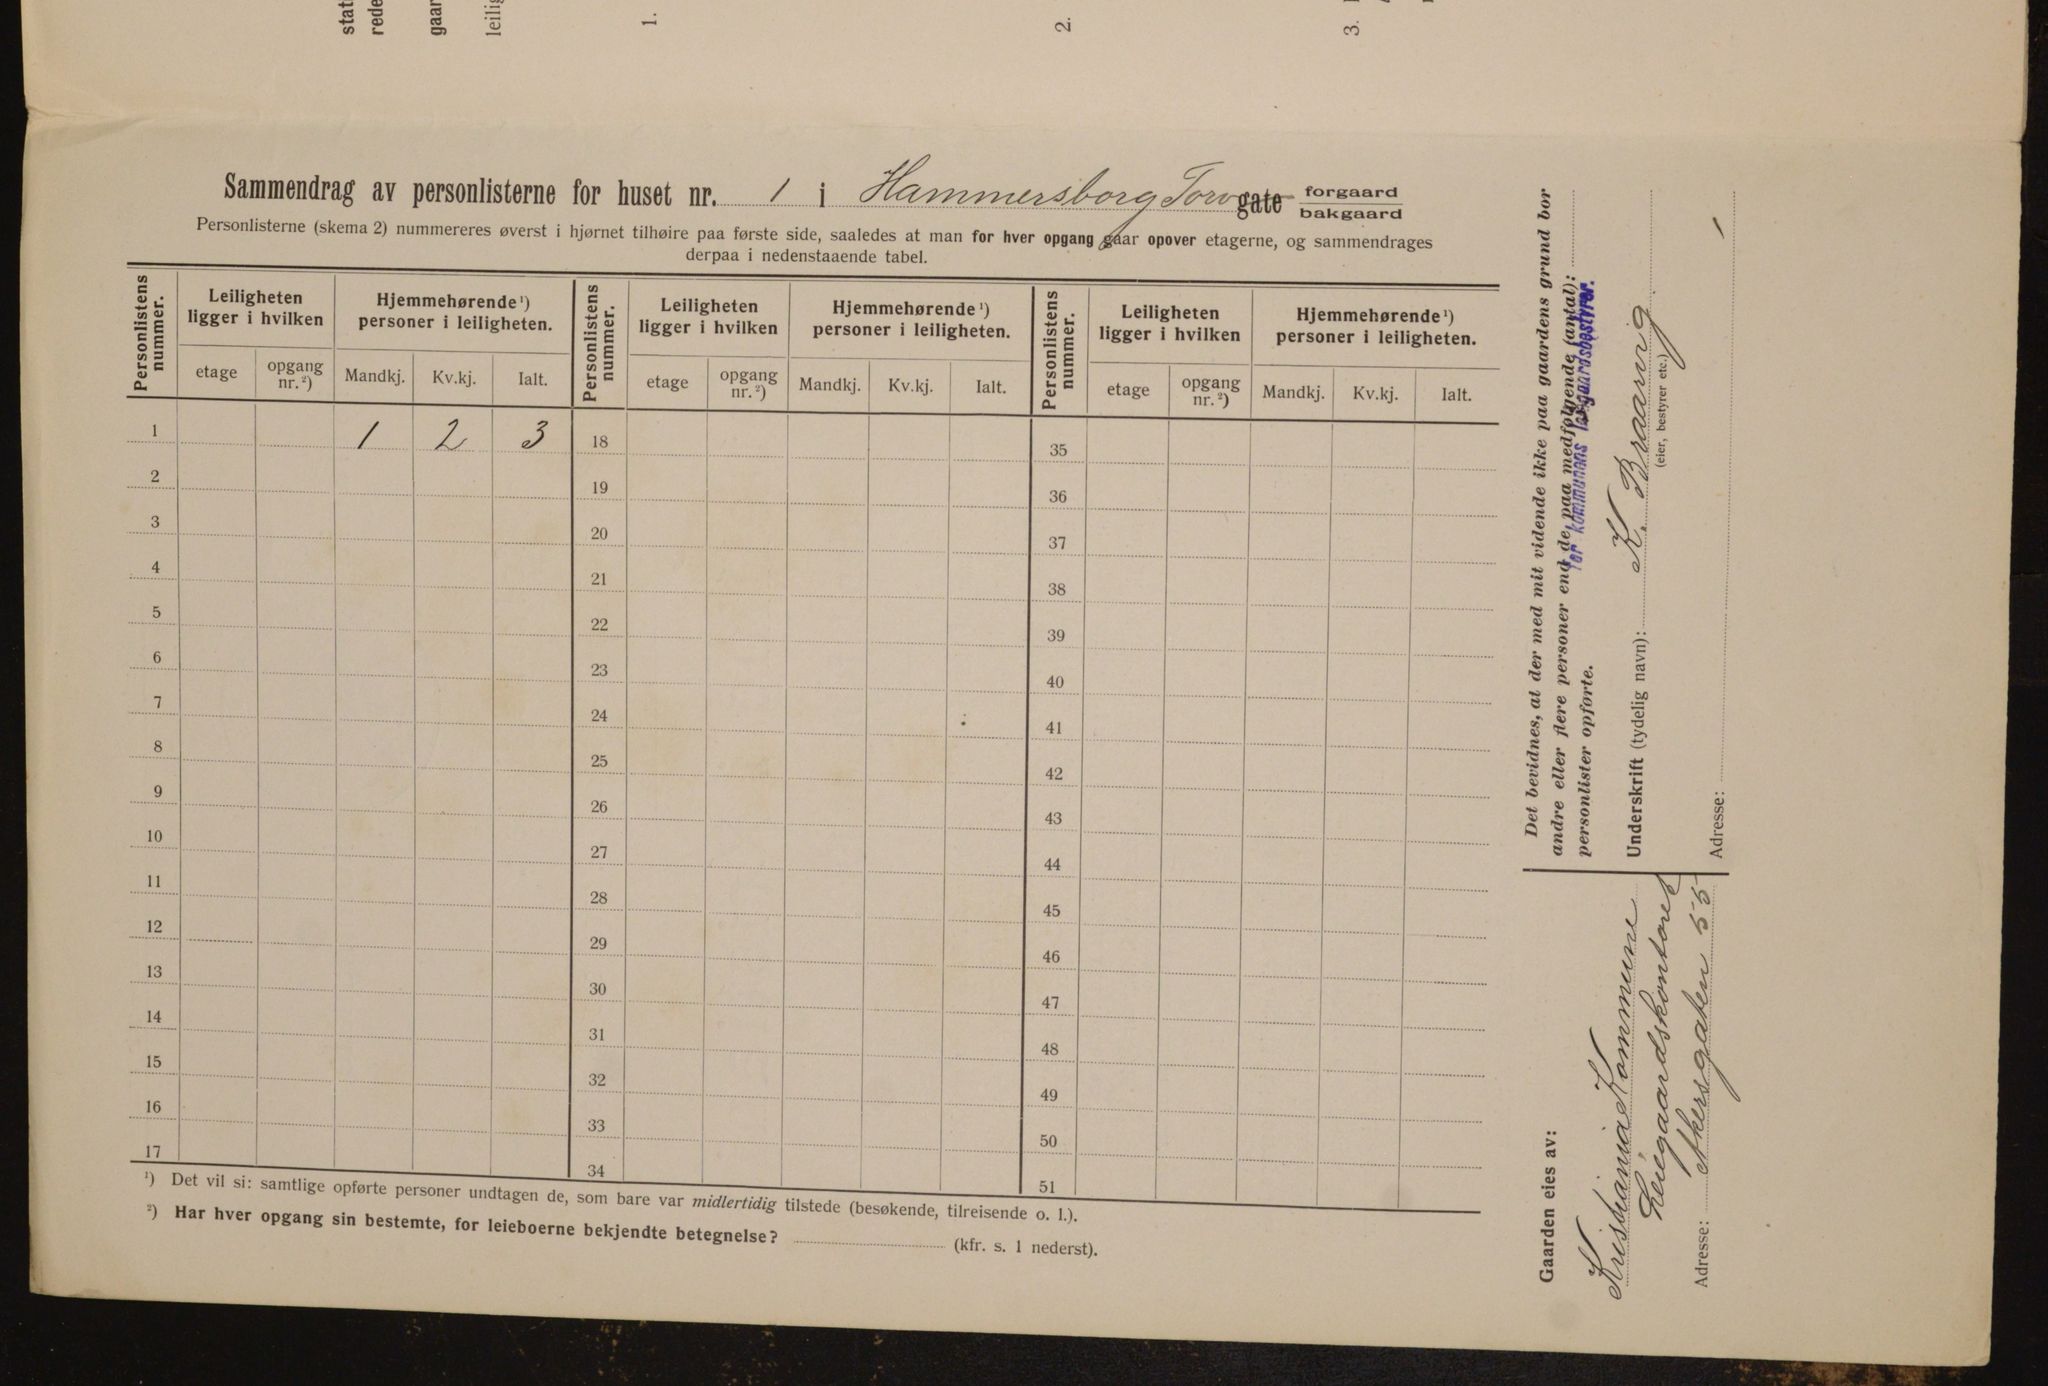 stati
rede
gaar
leilig
1.
2.
3.
Sammendrag av personlisterne for huset nr. 1 i Hammersborg Torv gate forgaard
bakgaard
Personlisterne (skema 2) nummereres øverst i hjørnet tilhøire paa første side, saaledes at man for hver opgang gaar opover etagerne, og sammendrages
derpaa i nedenstaaende tabel.
Personlistens nummer. Leiligheten ligger i hvilken Hjemmehørende ¹) personer i leiligheten. Personlistens nummer. Leiligheten ligger i hvilken Hjemmehørende ¹) personer i leiligheten. Personlistens nummer. Leiligheten ligger i hvilken Hjemmehørende ¹) personer i leiligheten.
etage opgang nr. ²) Mandkj. Kv.kj. Ialt. etage opgang nr. ²) Mandkj. Kv.kj. Ialt. etage opgang nr. ²) Mandkj. Kv.kj. Ialt.
1 1 2 3 18 35
2 19 36
3 20 37
4 21 38
5 22 39
6 23 40
7 24 41
8 25 42
9 26 43
10 27 44
11 28 45
12 29 46
13 30 47
14 31 48
15 32 49
16 33 50
17 34 51
¹) Det vil si: samtlige opførte personer undtagen de, som bare var midlertidig tilstede (besøkende, tilreisende o. l.).
²) Har hver opgang sin bestemte, for leieboerne bekjendte betegnelse? (kfr. s. 1 nederst).
Det bevidnes, at der med mit vidende ikke paa gaardens grund bor
andre eller flere personer end de, paa medfølgende (antal):
personlister opførte.
for kommunens leiegaardsbestyrer.
Underskrift (tydelig navn): K. Braarvig
(eier, bestyrer etc.)
Adresse:
Gaarden eies av:
Kristiania Kommune
Leiegaardskontoret
Adresse: Akersgaten 55